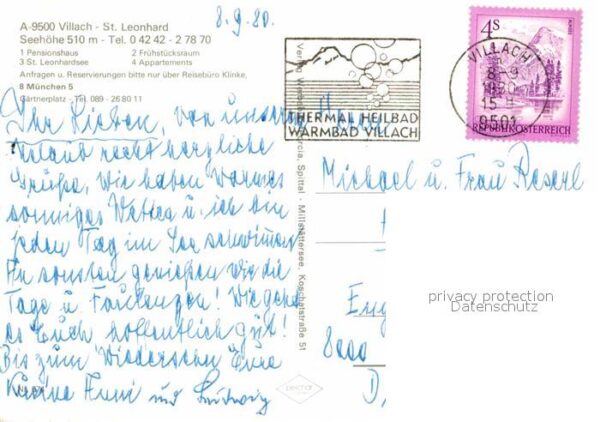 8.9.80.
A-9500 Villach - St. Leonhard
Seehöhe 510 m - Tel. 0 42 42 - 2 78 70
1 Pensionshaus 2 Frühstücksraum
3 St. Leonhardsee 4 Appartements
Anfragen u. Reservierungen bitte nur über Reisebüro Klinke,
8 München 5
Gärtnerplatz - Tel. 089 - 26 80 11
Ihr Lieben, von unserem
Urlaub recht herzliche
Grüße. Wir haben warmes
sonniges Wetter u. ich bin
jeden Tag im See schwimmen
An sonsten genießen wir die
Tage u. Faulenzen! Wie geht
es Euch hoffentlich gut!
Bis zum Wiedersehen Eure
Anni und Ludwig
Spittal - Millstättersee, Koschatstraße 51
THERMAL HEILBAD
WARMBAD VILLACH
4S
REPUBLIK ÖSTERREICH
VILLACH
8.-9
1980
15
9501
Michael u. Frau
8000
D,
privacy protection
Datenschutz